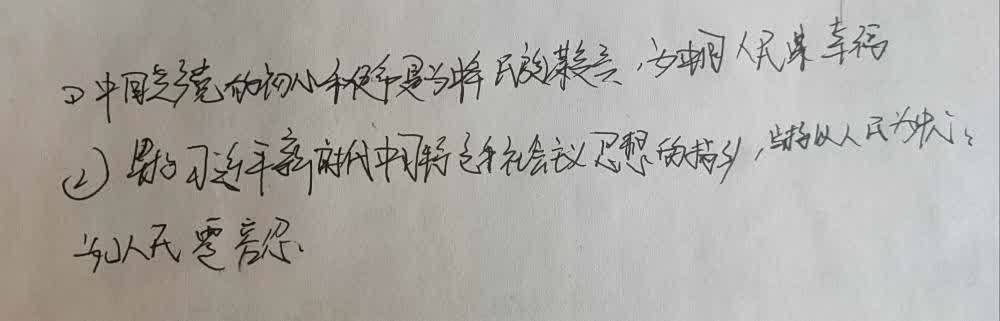 ① 中国共产党的初心和使命是为中华民族谋复兴,为中国人民谋幸福
② 坚持习近平新时代中国特色社会主义思想的指导,坚持以人民为中心;
为人民